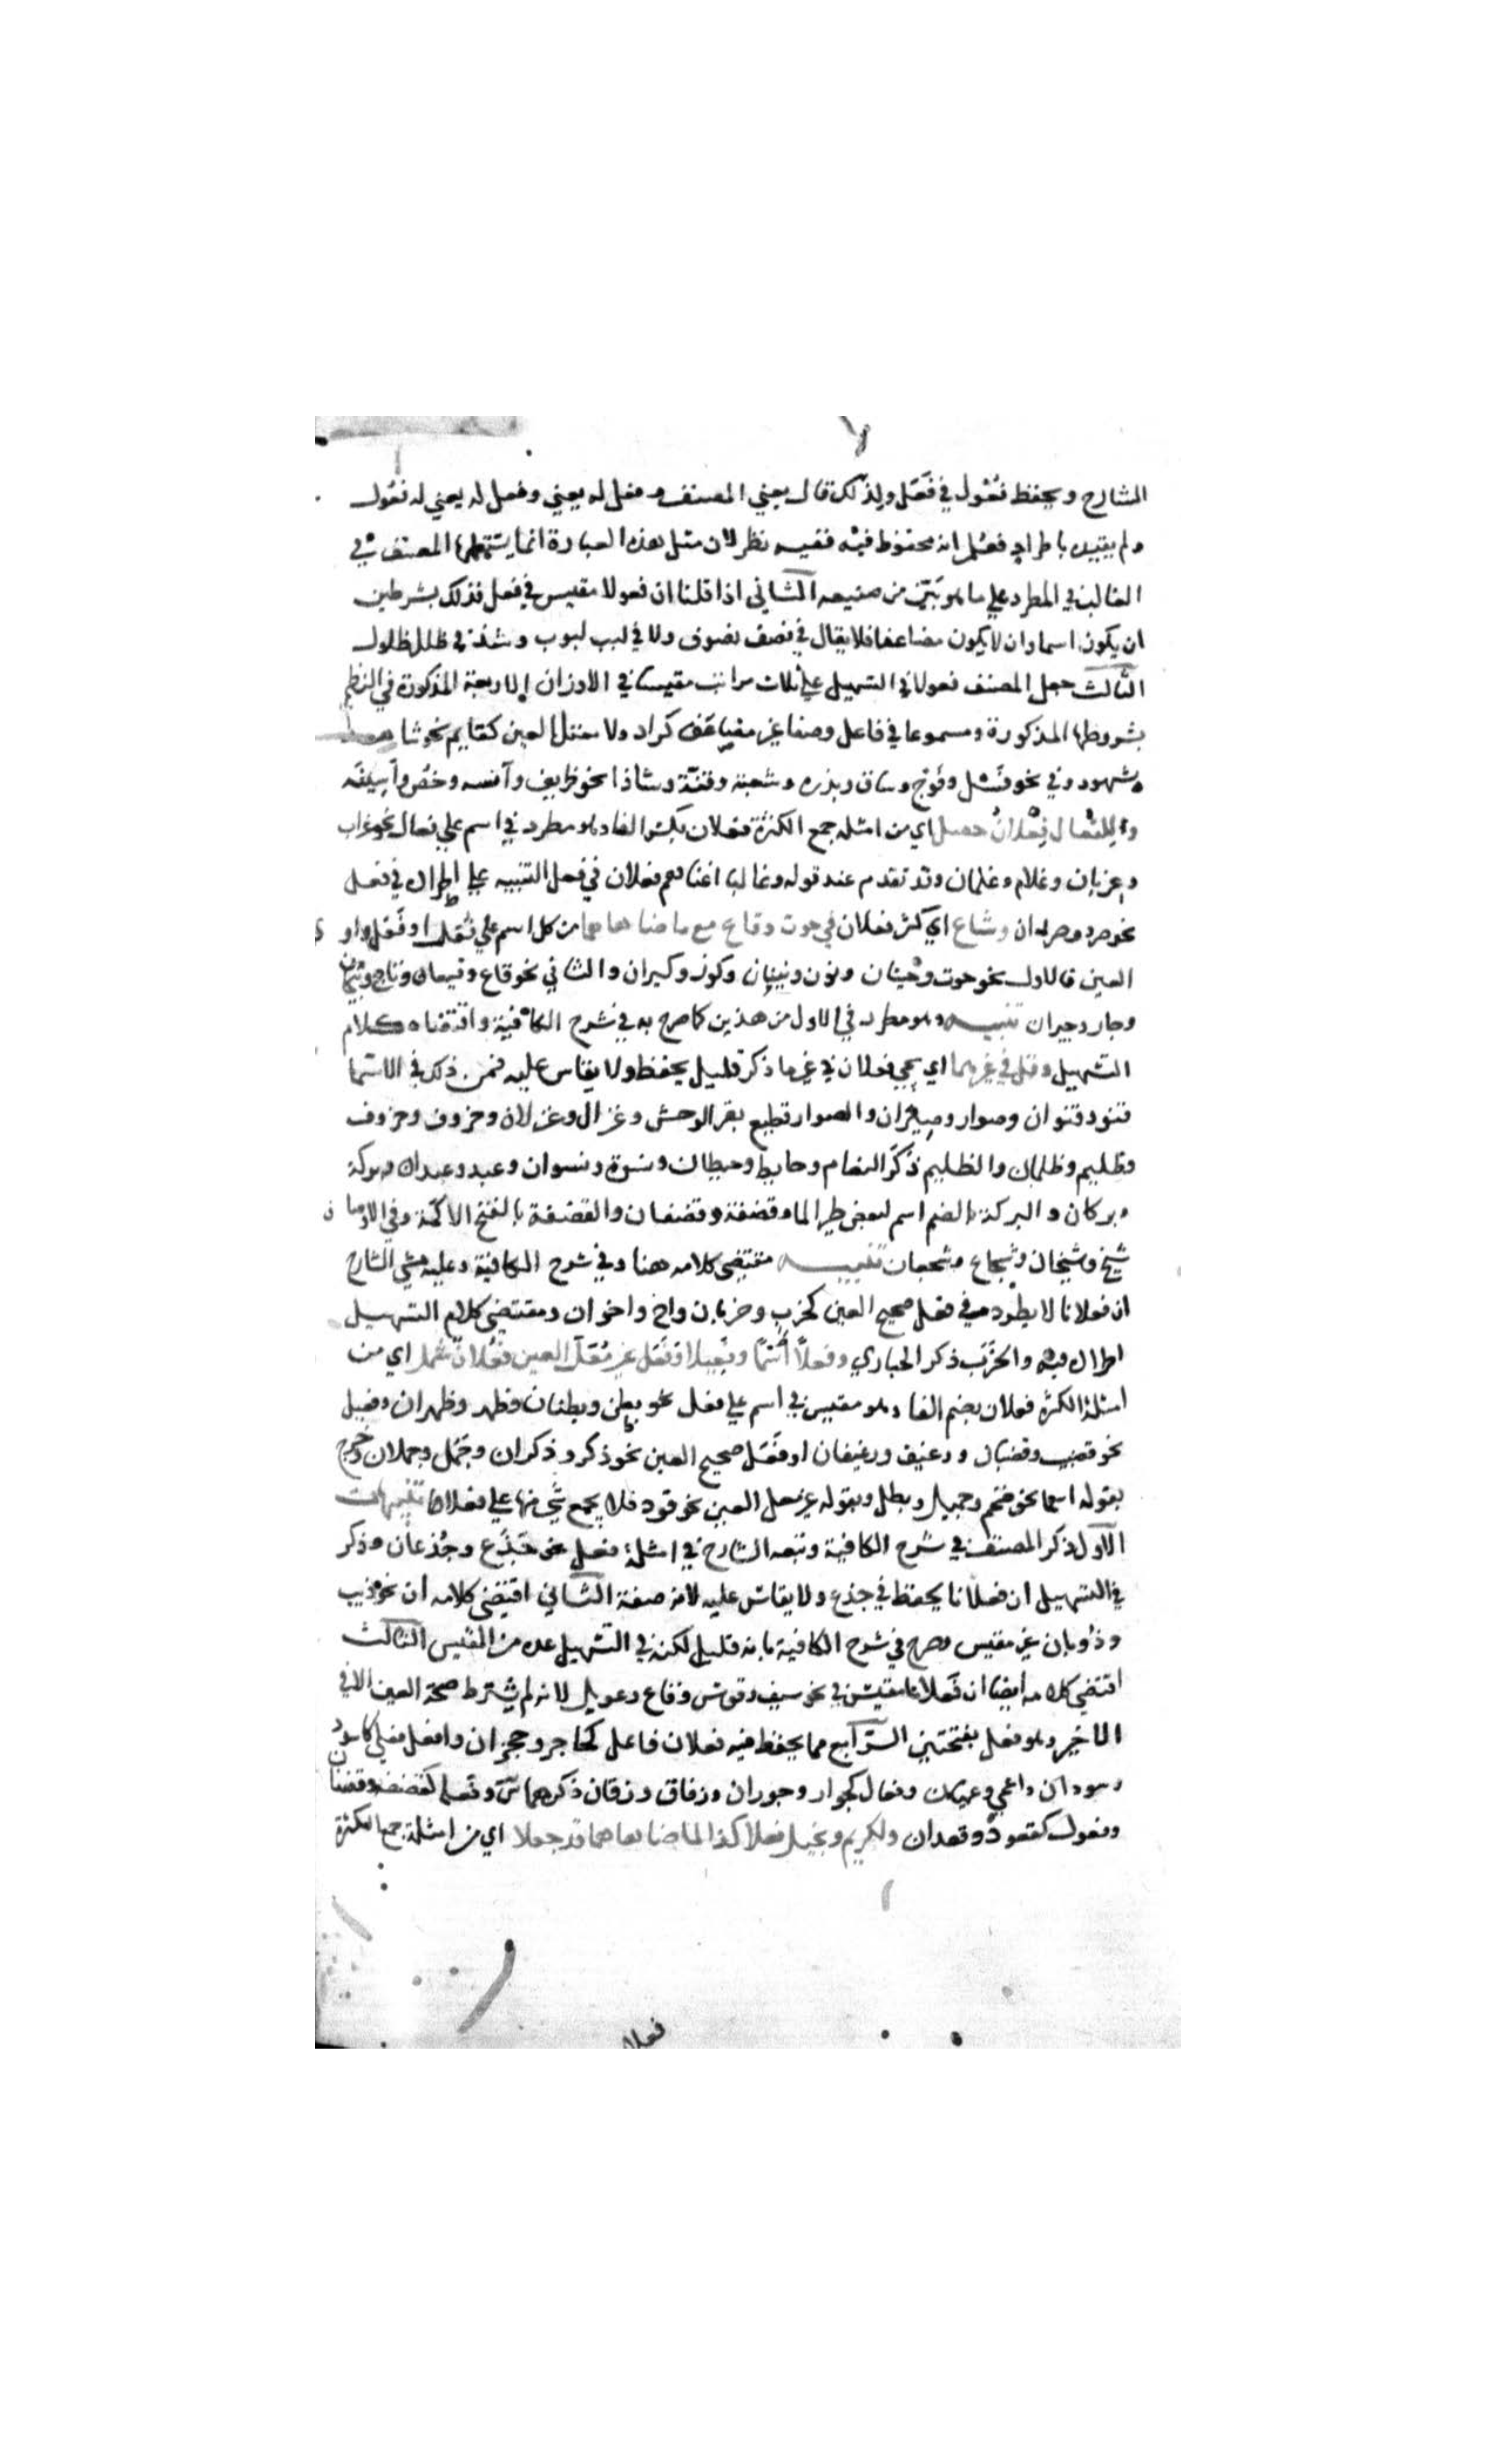 الشارح ويحفظ فُعُول في فَعَل ولذلك قال يعني المصنف وفعل له يعني وفعل له يعني له فعول
ولم يقيده باطراد فعلم انه محفوظ فيه ففيه نظر لان مثل هذه العبارة انما يستعملها المصنف في
الغالب في المطرد علي ما هو بيّن من صنيعه الثاني اذا قلنا ان فعولا مقيس في فعل فذلك بشرطين
ان يكون اسما وان لا يكون مضاعفا فلا يقال في نصف نصوف ولا في لبب لبوب وشذ في طلل طلول
الثالث جعل المصنف فعولا في التسهيل علي ثلاث مراتب مقيسا في الاوزان الاربعة المذكورة في النظم
بشروطها المذكورة ومسموعا في فاعل وصفا غير مضاعف كراد ولا معتل العين كقايم نحو شاهد
وشهود وفي نحو فَسْل وفَوْج وساق وبدره وشعبة وقنّة وشاذا نحو ظريف وآنسه وحُصّ وأسِينَه
وللفُعَال فِعْلَانٌ حصل اي من امثله جمع الكثرة فعلان بكسر الفا وهو مطرد في اسم علي فعال نحو غراب
وغربان وغلام وغلمان وقد تقدم عند قوله وغالبا اغناهم فعلان في فعل التنبيه علي اطراده في فعل
نحو صرد وصردان وشاع اي كثر فعلان في حوت وقاع مع ما ضاهاهما من كل اسم علي فُعْل او فَعَل واو
العين فالاول نحو حوت وحيتان ونون ونينان وكوز وكيزان والثاني نحو قاع وقيعان وتاج وتيجان
وجار وجيران تنبيه وهو مطرد في الاول من هذين كما صرح به في شرح الكافية واقتضاه كلام
التسهيل وقل في غيرهما اي يجي فعلان في غير ما ذكر قليل يحفظ ولا يقاس عليه فمن ذلك في الاسما
قنو وقنوان وصوار وصيران والصوار قطيع بقر الوحش وغزال وغزلان وخروف وخروف
وظليم وظلمان والظليم ذكَر النعام وحايط وحيطان ونسوة ونسوان وعبد وعبدان وبركة
وبركان والبركة بالضم اسم لبعض طير الما وقضفة وقضفان والقضفة بالفتح الاكمة وفي الاوصاف
شيخ وشيخان وشجاع وشجعان تنبيه مقتضي كلامه هنا وفي شرح الكافية وعليه مشي الشارح
ان فعلانا لا يطرد في فعل صحيح العين كخرب وخربان واخ واخوان ومقتضي كلام التسهيل
اطراده فيه والخَرَب ذكر الحباري وفعلاً اسمًا وفَعِيلا وفَعَل غير مُعَلّ العين فُعْلانٌ شمل اي من
امثلة الكثرة فعلان بضم الفا وهو مقيس في اسم علي فعل نحو بطن وبطنان وظهر وظهران وفعيل
نحو قضيب وقضبان ورغيف ورغيفان او فَعَل صحيح العين نحو ذكر وذكران وجَمَل وجملان وخرج
بقوله اسما نحو ضخم وجميل وبطل وبقوله غير معل العين نحو قود فلا يجمع شي منها علي فعلان تنبيهات
الاول ذكر المصنف في شرح الكافية وتبعه الشارح في امثلة فعل نحو جَذَع وجُذعان وذكر
في التسهيل ان فعلانا يحفظ في جذع ولا يقاس عليه لانه صفة الثاني اقتضي كلامه ان نحو ذيب
وذوبان غير مقيس وصرح في شرح الكافية بانه قليل لكنه في التسهيل عده من المقيس الثالث
اقتضي كلامه ايضا ان فُعلانا مقيس في نحو سيف وقوس وقاع وعويل لانه لم يشترط صحة العين الا في
الاخير وهو فعل بفتحتين الرابع مما يحفظ فيه فعلان فاعل كحاجر وحجران وافعل فعلي كاسود
وسودان واعمي وعميان وفعال كحوار وحوران وزقاق وزقان ذكرهما س وفعلة كقضفة وقضفان
وفعول كقعود وقعدان ولكريم وبخيل فعلا كذا لما ضاهاهما قد جعلا اي من امثلة جمع الكثرة
فعلا